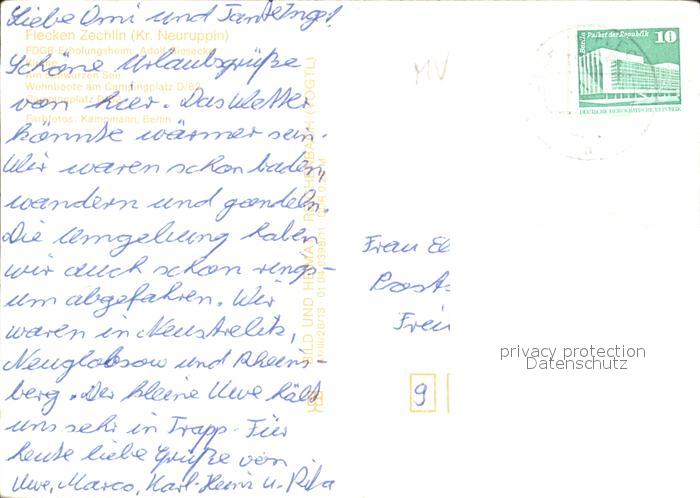 Liebe Omi und Tante Inge!
Flecken Zechlin (Kr. Neuruppin)
FDGB-Erholungsheim "Adolf
Schöne Urlaubsgrüße
Am Schwarzen See
Wohnboote am Campingplatz D/82
von hier. Das Wetter
Farbfotos: Kampmann, Berlin
könnte wärmer sein.
Wir waren schon baden,
wandern und gondeln.
Die Umgebung haben
wir auch schon rings-
um abgefahren. Wir
waren in Neustrelitz,
Neuglobsow und Rheins-
berg. Der kleine Uwe hält
uns sehr in Trapp. Für
heute liebe Grüße von
Uwe, Marco, Karl-Heinz u. Rita
BILD UND HEIMAT REICHENBACH (VOGTL)
MV
Berlin Palast der Republik
10
DEUTSCHE DEMOKRATISCHE REPUBLIK
Frau El
Posts
Frei
9
privacy protection
Datenschutz